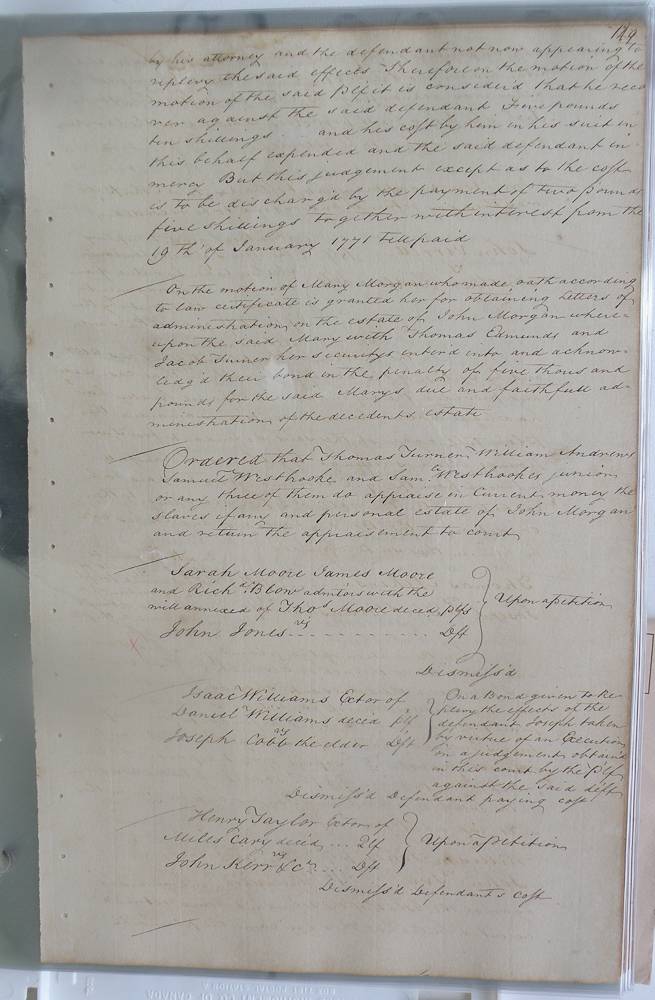 149
by his attorney and the defendant not now appearing to
replevy the said effects Therefore on the motion of the
motion of the said Plf it is consider'd that he reco
ver against the said defendant Four pounds
ten shillings and his cost by him in his suit in
this behalf expended and the said defendant in
mercy But this judgement except as to the cost
is to be discharg'd by the payment of two pounds
five shillings together with interest from the
19th of January 1771 till paid
On the motion of Mary Morgan who made oath according
to law certificate is granted her for obtaining letters of
administration on the estate of John Morgan where=
upon the said Mary with Thomas Edmunds and
Jacob Turner her securitys enterd into and acknow=
ledg'd their bond in the penalty of five thousand
pounds for the said Marys due and faithfull ad=
ministration of the decedents estate
Ordered that Thomas Turner William Andrews
Samuel Westbrooke and Saml. Westbrookes junior
or any three of them do appraise in Current money the
slaves if any and personal estate of John Morgan
and return the appraisement to court
Sarah Moore James Moore
and Richd. Blow admtors with the
will annexed of Thos Moore deced Plfs
vs
John Jones Dft
Upon a Petition
Dismiss'd
Isaac Williams Extor of
Daniel Williams deced Plf
vs
Joseph Cobb the elder Dft
On a Bond given to Re=
plevy the effects of the
defendant Joseph taken
by virtue of an Execution
on a judgement obtain'd
in this court by the Plf
against the said deft
Dismiss'd Defendant paying cost
Henry Taylor Extor of
Miles Cary deced ... Plf
vs
John Kerr &c ... Dft
Upon a Petition
Dismiss'd Defendants cost